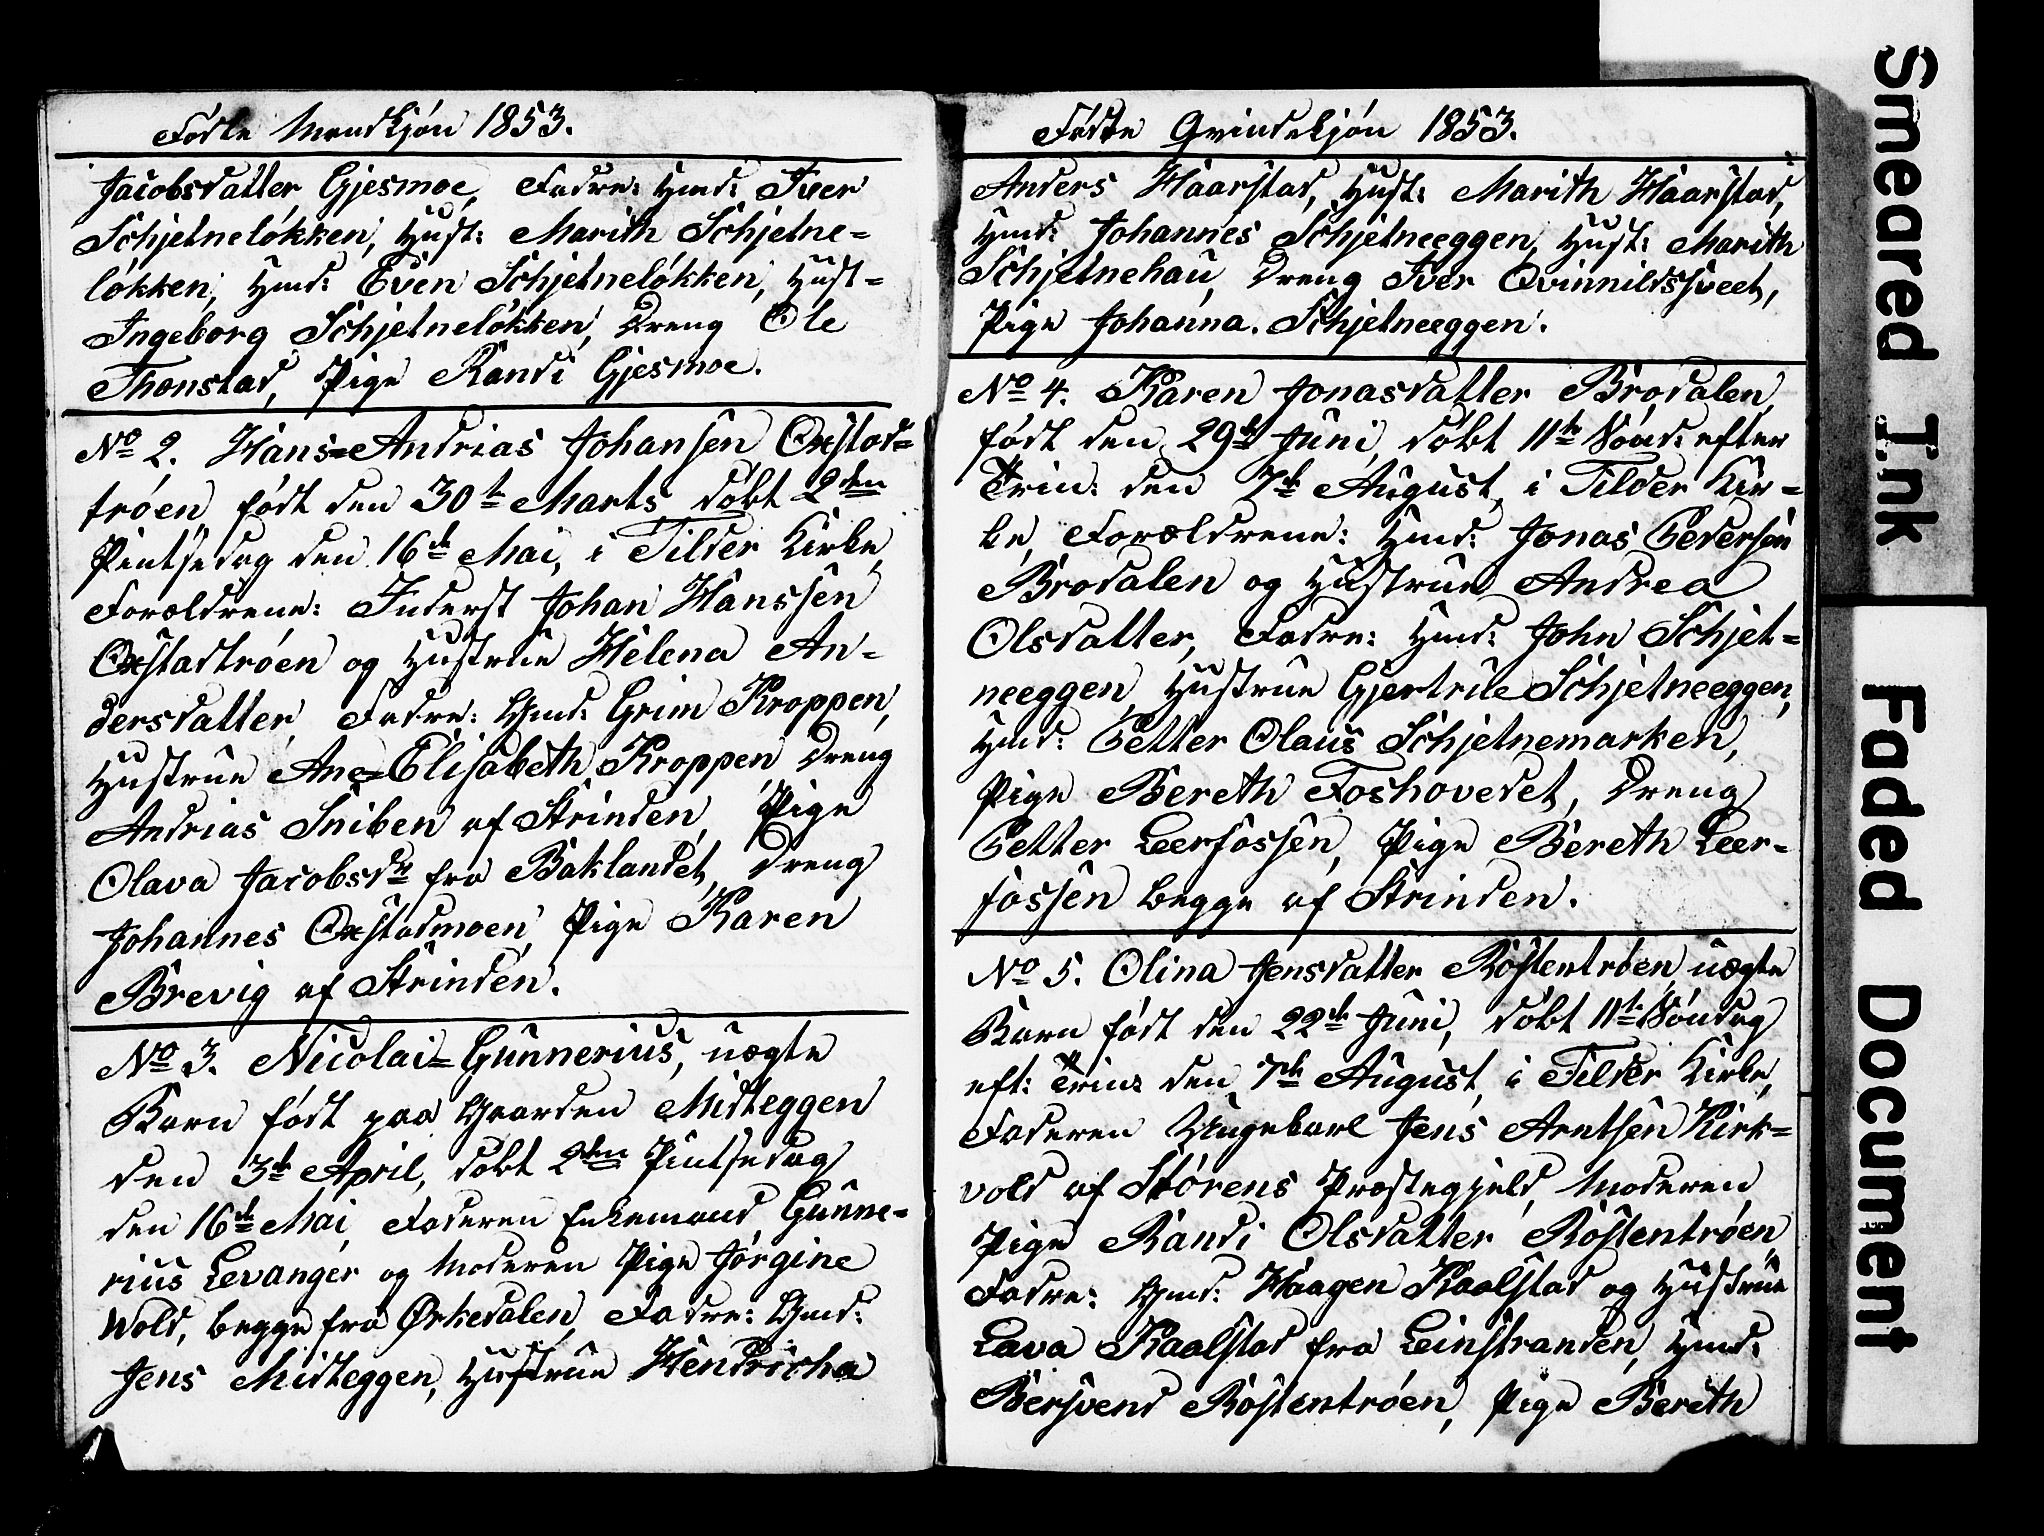 Fødte Mandkjøn 1853.
Jacobsdatter Gjesmoe, Fadre: Hmd: Iver
Schjetneløkken, Hust: Marith Schjetne=
løkken, Hmd: Even Schjetneløkken, Hust=
Ingeborg Schjetneløkken, Dreng Ole
Thonstad, Pige Randi Gjesmoe.
No 2. Hans=Andrias Johansen Oxstad=
trøen, født den 30te Marts døbt 2den
Pintsedag den 16de Mai, i Tilder Kirke,
Forældrene: Inderst Johan Hanssen
Oxstadtrøen og Hustrue Helena An=
dersdatter, Fadre: Gmd: Grim Kroppen,
Hustrue Ane=Elisabeth Kroppen Dreng
Andrias Sniben af Strinden, Pige
Olava Jacobsdtr fra Baklandet, Dreng
Johannes Oxstadmoen, Pige Karen
Brevig af Strinden.
No 3. Nicolai=Gunnerius, uægte
Barn født paa Gaarden Midteggen
den 3de April, døbt 2den Pintsedag
den 16de Mai, Faderen Enkemand Gunne=
rius Levanger og Moderen Pige Jørgine
Wold, begge fra Ørkedalen, Fadre: Gmd:
Jens Midteggen, Hustrue Hendricha
Fødte Qvindekjøn 1853.
Anders Haarstad, Hust: Marith Haarstad,
Hmd: Johannes Schjetneeggen, Hust: Marith
Schjetnehau, Dreng Iver Qvinnildssveet,
Pige Johanna. Schjetneeggen.
No 4. Karen Jonasdatter Brodalen,
født den 29de Juni, døbt 11te Sønd: efter
Trin: den 7de August, i Tilder Kir=
ke, Forældrene: Hmd: Jonas Pedersen
Brodalen og Hustrue Andrea
Olsdatter, Fadre: Hmd: John Schjet=
neeggen, Hustrue Gjertrue Schjetneeggen,
Hmd: Petter Olaus Schjetnemarken,
Pige Bereth Foshovedet, Dreng
Petter Leerfossen, Pige Bereth Leer=
fossen begge af Strinden.
No 5. Olina Jensdatter Røstentrøen, uægte
Barn født den 22de Juni, døbt 11te Søndag
eft: Trin: den 7de August, i Tilder Kirke,
Faderen Ungekarl Jens Arntsen Kirk=
vold af Størens Præstegjeld, Moderen
Pige Randi Olsdatter Røstentrøen,
Fadre: Gmd: Haagen Kaalstad og Hustrue
Lava Kaalstad fra Leinstranden, Hmd:
Bersvend Røstentrøen, Pige Bereth
Smeared Ink
Faded Document